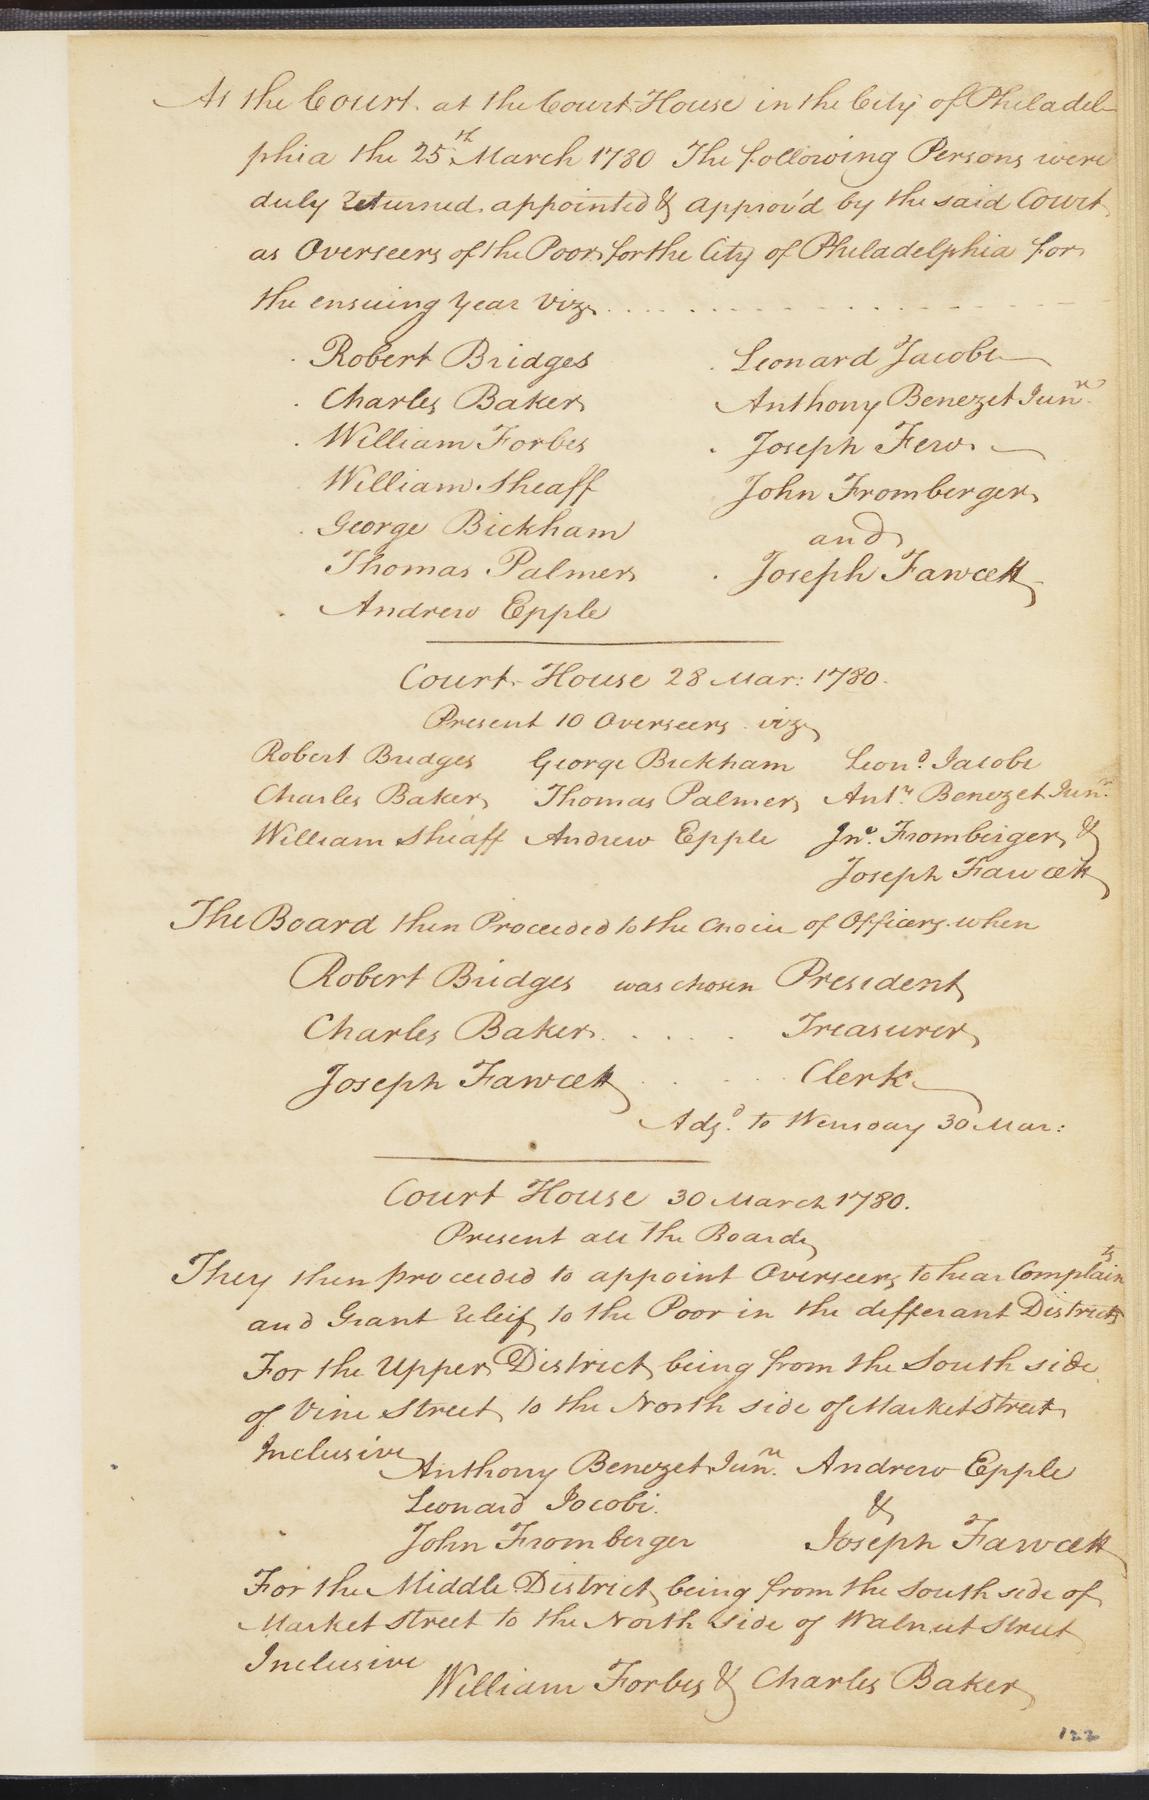 At the Court at the Court House in the City of Philadel-
phia the 25th March 1780 The following Persons were
duly returned appointed & approv'd by the said Court
as Overseers of the Poor for the City of Philadelphia for
the ensuing year viz
Robert Bridges Leonard Jacobi
Charles Baker Anthony Benezet Junr.
William Forbes Joseph Few
William Sheaff John Fromberger
George Bickham and
Thomas Palmer Joseph Fawcett
Andrew Epple
Court House 28 Mar: 1780.
Present 10 Overseers viz
Robert Bridges George Bickham Leond. Jacobi
Charles Baker Thomas Palmer Anty. Benezet Junr.
William Sheaff Andrew Epple Jno. Fromberger &
Joseph Fawcett
The Board then Proceeded to the Choice of Officers when
Robert Bridges was chosen President
Charles Baker . . . . . Treasurer
Joseph Fawcett . . . . Clerk
Adjd. to Wensday 30 Mar:
Court House 30 March 1780.
Present all the Board
They then proceeded to appoint Overseers to hear Complaints
and Grant releif to the Poor in the differant Districts
For the Upper District being from the South side
of Vine Street to the North side of Market Street
Inclusive
Anthony Benezet Junr. Andrew Epple
Leonard Jacobi. &
John Fromberger Joseph Fawcett
For the Middle District being from the South side of
Market Street to the North side of Walnut Street
Inclusive
William Forbes & Charles Baker
122